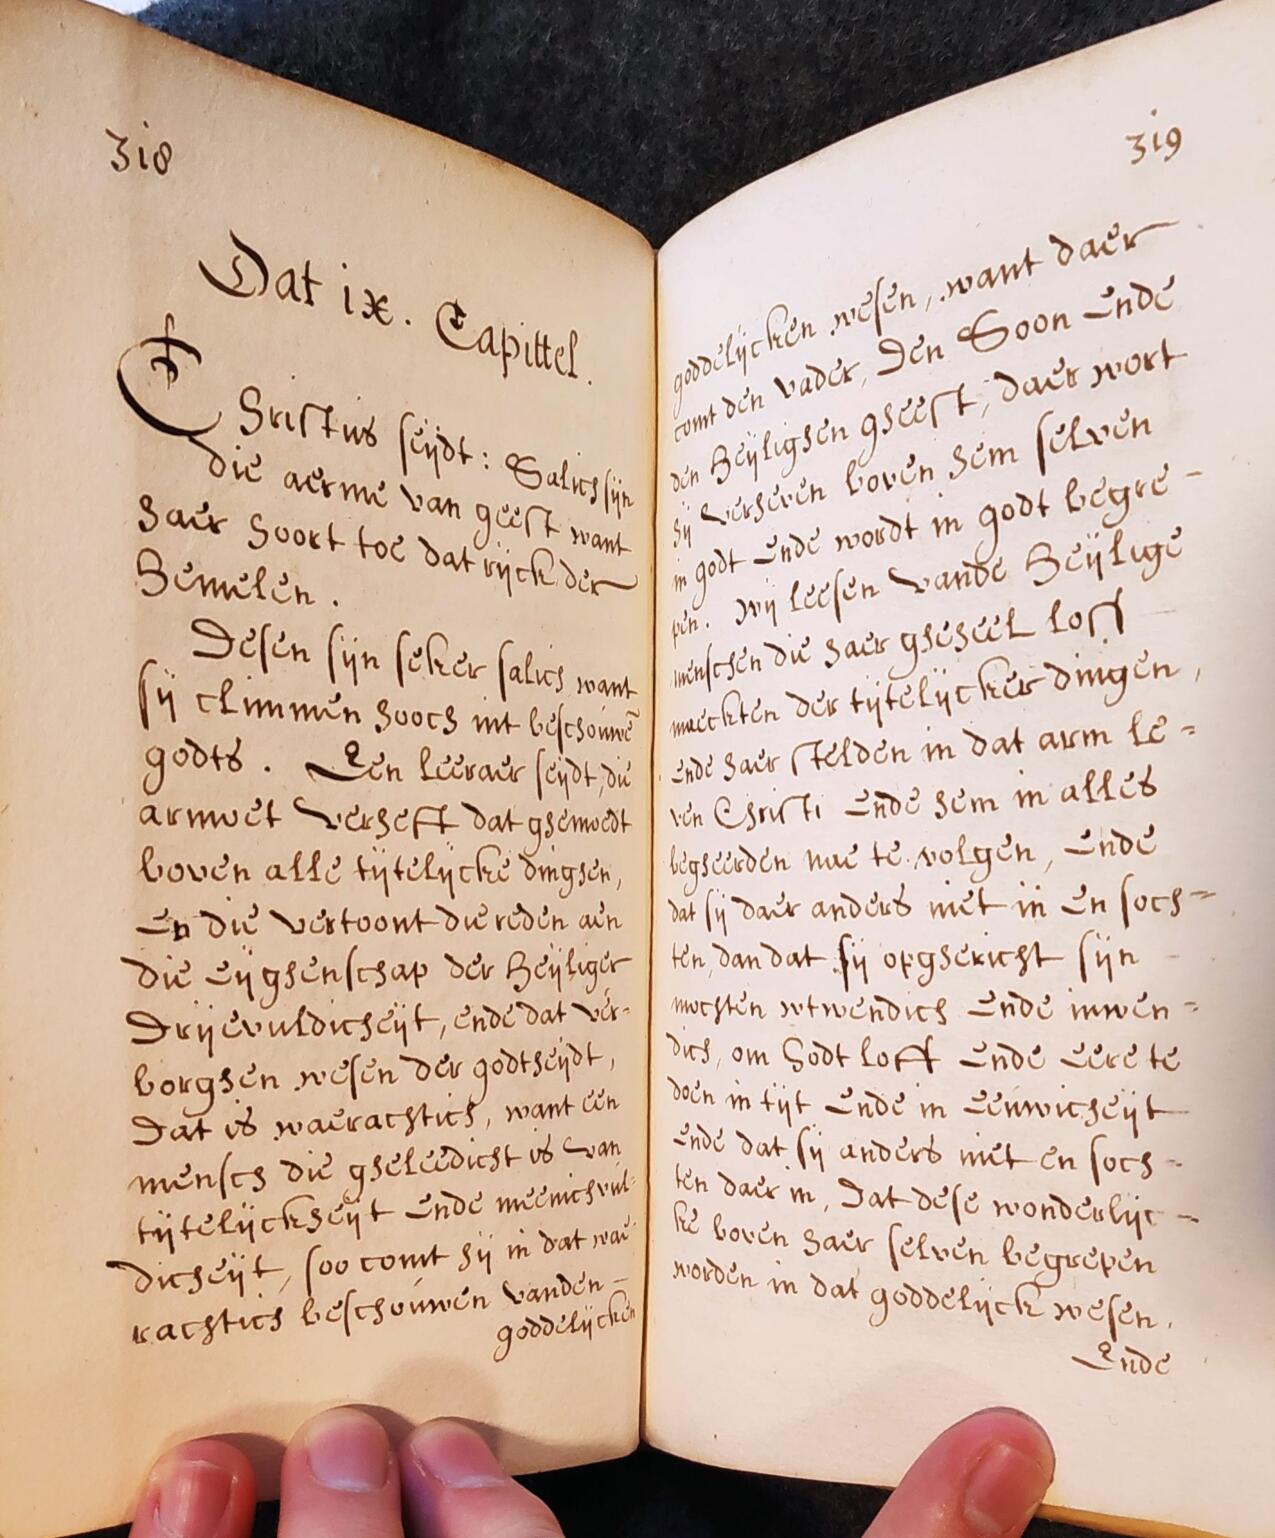 318
Dat ix. Capittel.
Christus seijdt: Salich sijn
die aerme van geest want
haer hoort toe dat rijck der
Hemelen.
Desen sijn seker salich want
sij climmen hooch int beschouwē
godts. Een leeraer seijdt, die
armoet verheft dat ghemoedt
boven alle tijtelijcke dinghen,
En die vertoont die reden aen
die eijghenschap der Heijliger
Drijevuldicheijt, ende dat ver-
borghen wesen der godtheijdt,
Dat is waerachtich, want een
mensch die gheleedicht is van
tijtelijckheijt ende meenichvul-
dicheijt, soo comt hij in dat wae-
rachtich beschouwen vanden
goddelijcken
319
goddelijcken wesen, want daer
comt den vader, Den Soon Ende
den Heijlighen gheest, daer wort
hij verheven boven hem selven
in godt Ende wordt in godt begre-
pen. Wij leesen vande Heijlige
menschen die haer gheheel loss
maeckten der tijtelijcker dingen,
Ende haer stelden in dat arm le-
ven Christi Ende hem in alles
begheerden nae te volgen, Ende
dat sij daer anders niet in en soch-
ten, dan dat sij opghericht sijn
mochten wtwendich Ende inwen-
dich, om Godt loff Ende Eere te
doen in tijt Ende in Eeuwicheijt
Ende dat sij anders niet en soch-
ten daer in, Dat dese wonderlijc-
ke boven haer selven begrepen
worden in dat goddelijck wesen.
Ende